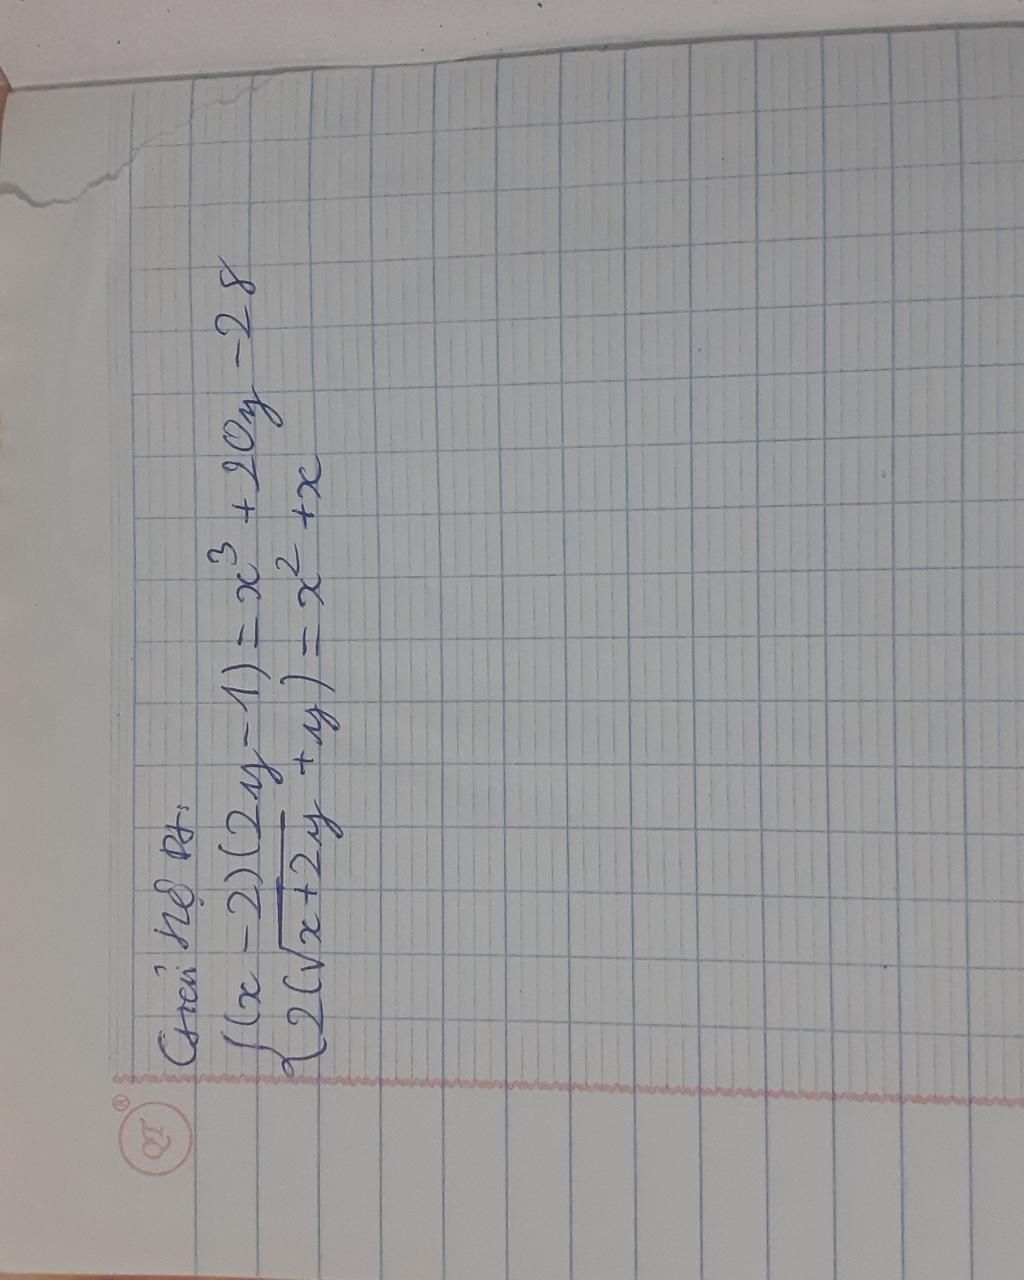 Giải hệ pt:
{(x - 2)(2y - 1) = x³ + 20y - 28
{2(√x+2y + y) = x² + x